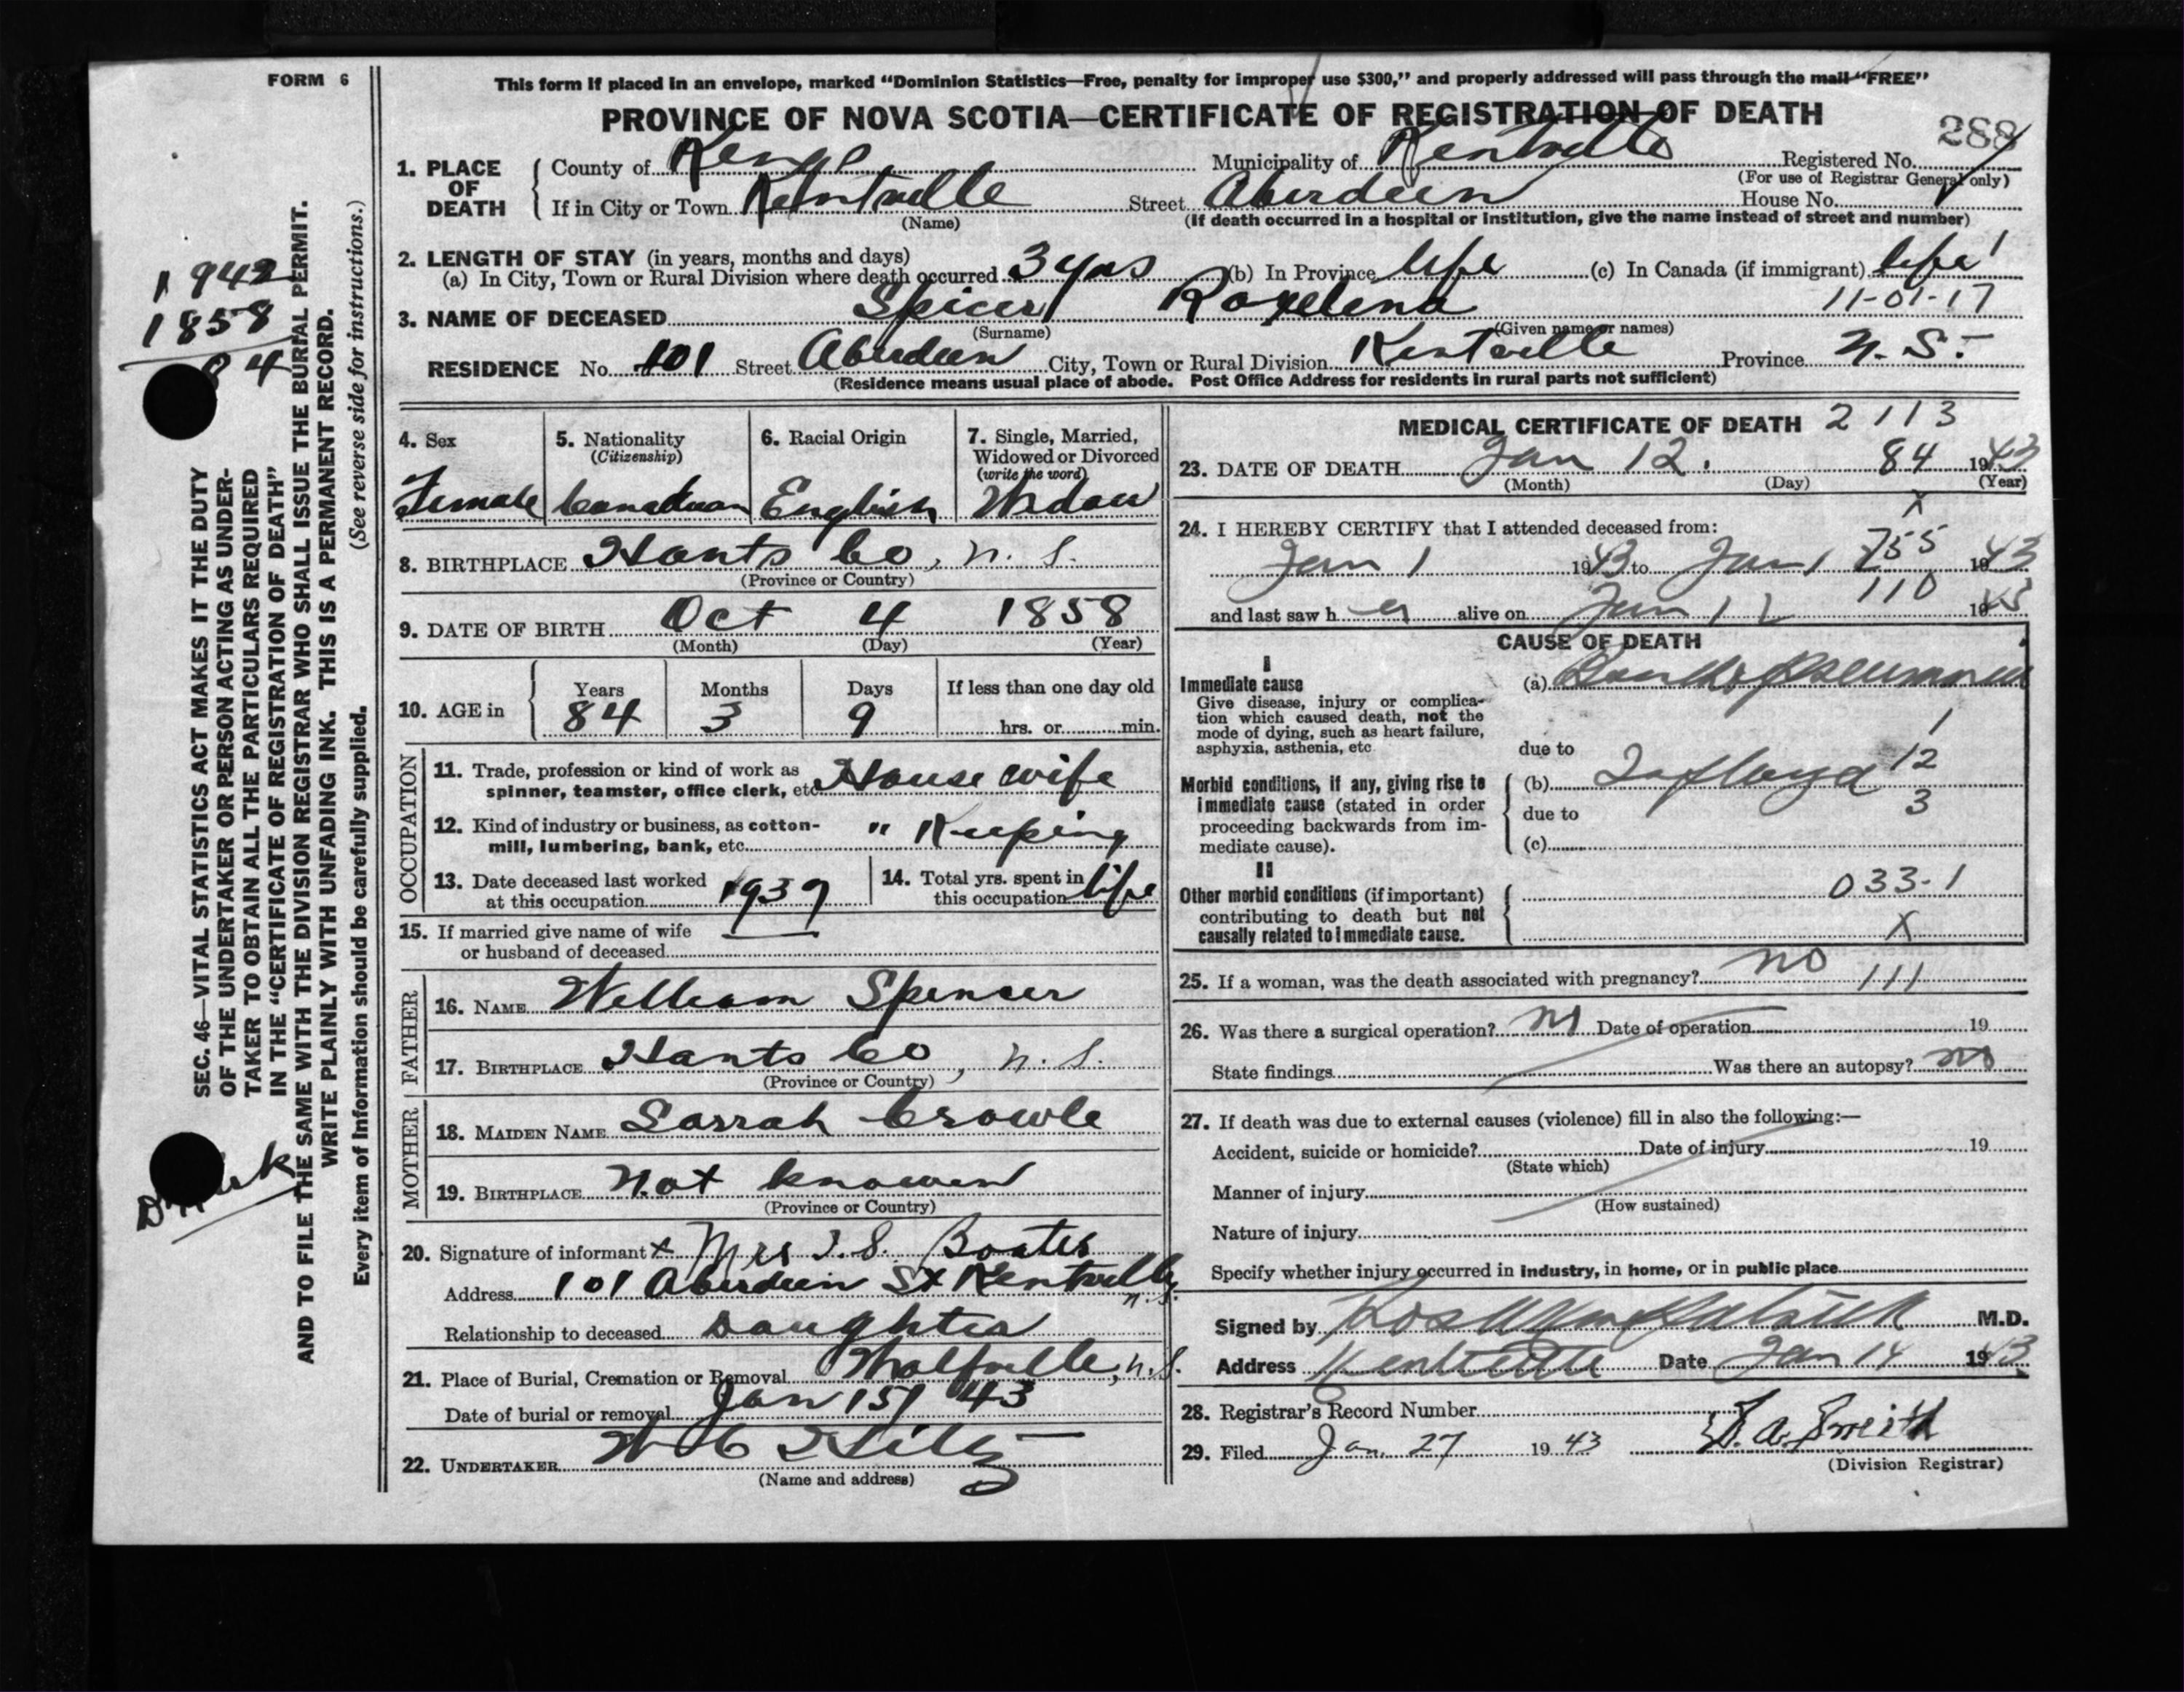 FORM 6
This form if placed in an envelope, marked “Dominion Statistics—Free, penalty for improper use $300,” and properly addressed will pass through the mail “FREE”
PROVINCE OF NOVA SCOTIA—CERTIFICATE OF REGISTRATION OF DEATH
288
1. PLACE OF DEATH
County of Kings Municipality of Kentville Registered No.
(For use of Registrar General only)
If in City or Town Kentville Street Aberdeen House No.
(Name) (If death occurred in a hospital or institution, give the name instead of street and number)
2. LENGTH OF STAY (in years, months and days)
(a) In City, Town or Rural Division where death occurred 3 yrs (b) In Province life (c) In Canada (if immigrant) life
11-01-17
3. NAME OF DECEASED Spicer Roxelena
(Surname) (Given name or names)
RESIDENCE No. 101 Street Aberdeen City, Town or Rural Division Kentville Province N.S.
(Residence means usual place of abode. Post Office Address for residents in rural parts not sufficient)
4. Sex 5. Nationality 6. Racial Origin 7. Single, Married,
(Citizenship) Widowed or Divorced
(write the word)
Female Canadian English Widow
8. BIRTHPLACE Hants Co, N.S.
(Province or Country)
9. DATE OF BIRTH Oct 4 1858
(Month) (Day) (Year)
10. AGE in Years Months Days If less than one day old
84 3 9 hrs. or min.
OCCUPATION
11. Trade, profession or kind of work as
spinner, teamster, office clerk, etc. House wife
12. Kind of industry or business, as cotton-
mill, lumbering, bank, etc. " Keeping
13. Date deceased last worked
at this occupation 1939
14. Total yrs. spent in
this occupation life
15. If married give name of wife
or husband of deceased
FATHER
16. NAME William Spencer
17. BIRTHPLACE Hants Co, N.S.
(Province or Country)
MOTHER
18. MAIDEN NAME Sarrah Crowle
19. BIRTHPLACE Not known
(Province or Country)
20. Signature of informant x Mrs
Address 101 Aberdeen St Kentville N.S.
Relationship to deceased Daughter
21. Place of Burial, Cremation or Removal Wolfville, N.S.
Date of burial or removal Jan 15/43
22. UNDERTAKER W C Hiltz
(Name and address)
MEDICAL CERTIFICATE OF DEATH 2113
23. DATE OF DEATH Jan 12. 84 1943
(Month) (Day) (Year)
X
24. I HEREBY CERTIFY that I attended deceased from:
Jan 1 1943 to Jan 1 755 1943
110
and last saw h er alive on Jan 12 1943
CAUSE OF DEATH
I
Immediate cause
Give disease, injury or complica-
tion which caused death, not the
mode of dying, such as heart failure,
asphyxia, asthenia, etc
(a) Pneumonia
1
due to
Morbid conditions, if any, giving rise to
immediate cause (stated in order
proceeding backwards from im-
mediate cause).
(b) 12
due to 3
(c)
II
Other morbid conditions (if important)
contributing to death but not
causally related to immediate cause.
033-1
X
25. If a woman, was the death associated with pregnancy? no 111
26. Was there a surgical operation? no Date of operation 19
State findings Was there an autopsy? no
27. If death was due to external causes (violence) fill in also the following:—
Accident, suicide or homicide? Date of injury 19
(State which)
Manner of injury
(How sustained)
Nature of injury
Specify whether injury occurred in industry, in home, or in public place
Signed by M.D.
Address Kentville Date Jan 14 1943
28. Registrar's Record Number
29. Filed Jan. 27 1943 Smith
(Division Registrar)
1942
1858
84
SEC. 46—VITAL STATISTICS ACT MAKES IT THE DUTY
OF THE UNDERTAKER OR PERSON ACTING AS UNDER-
TAKER TO OBTAIN ALL THE PARTICULARS REQUIRED
IN THE “CERTIFICATE OF REGISTRATION OF DEATH”
AND TO FILE THE SAME WITH THE DIVISION REGISTRAR WHO SHALL ISSUE THE BURIAL PERMIT.
WRITE PLAINLY WITH UNFADING INK. THIS IS A PERMANENT RECORD.
Every item of Information should be carefully supplied. (See reverse side for instructions.)